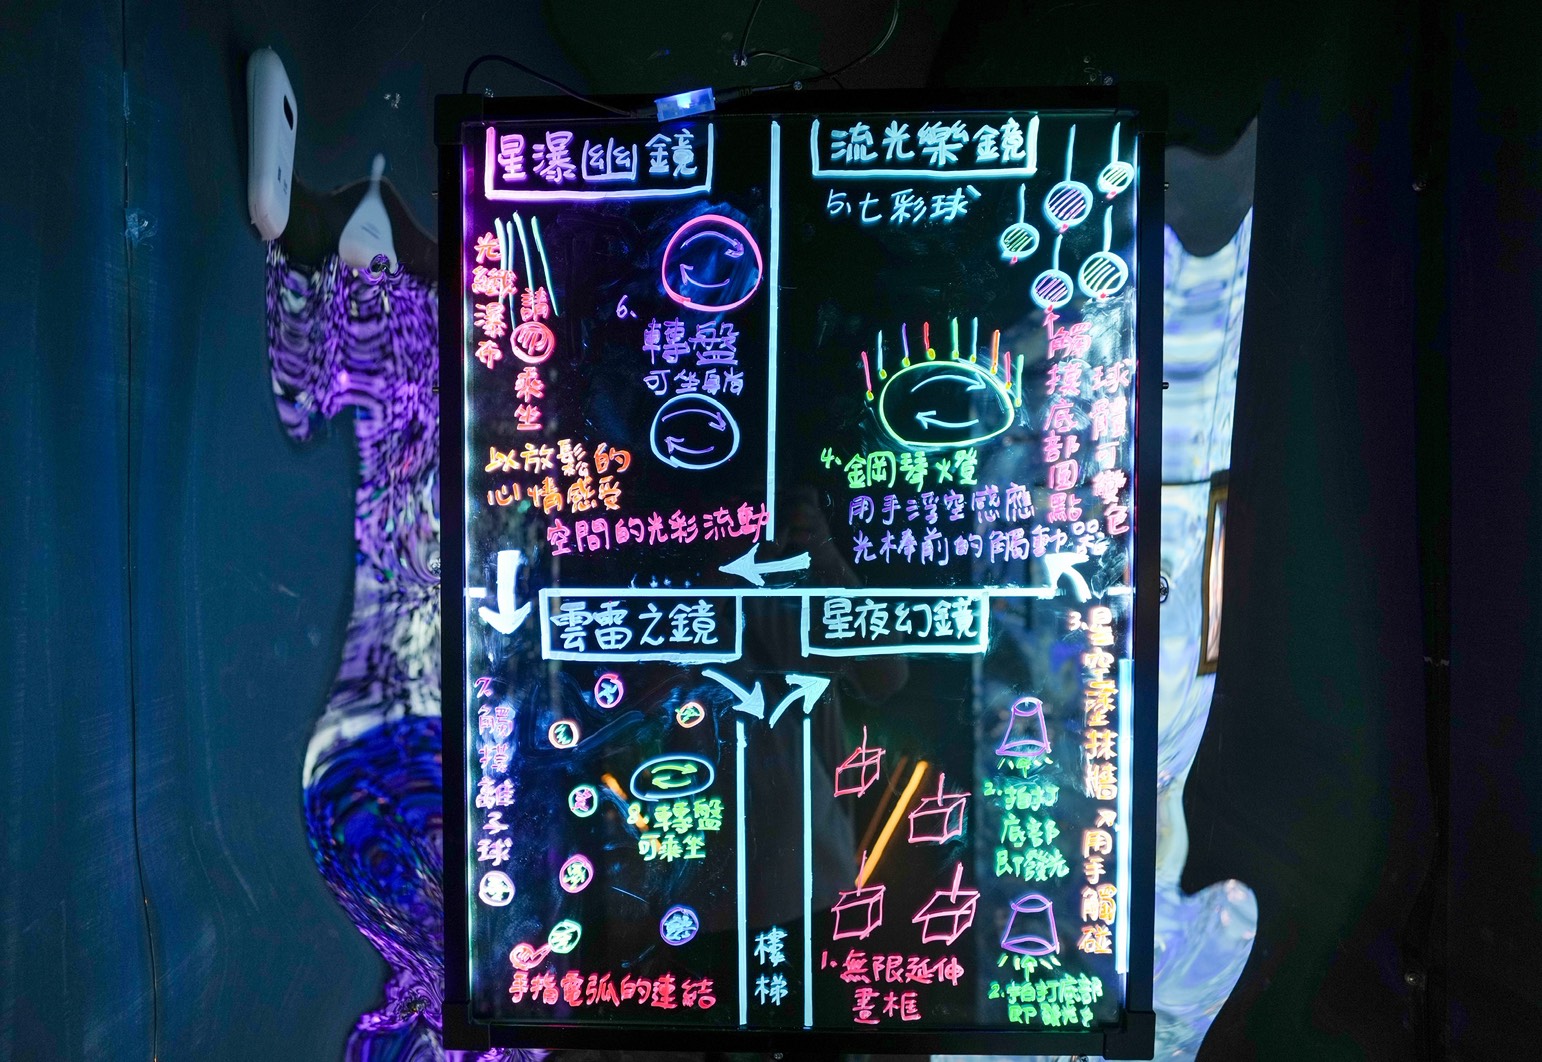 星瀑幽鏡
光纖瀑布
請勿乘坐
6、
轉盤
可坐躺
以放鬆的
心情感受
空間的光彩流動
流光樂鏡
5、七彩球
觸摸底部圓點
球體可變色
4、鋼琴燈
用手浮空感應
光棒前的觸動器
雲雷之鏡
7、觸摸離子球
8、轉盤
可乘坐
手指電弧的連結
樓梯
星夜幻鏡
3、星空塗抹牆
用手觸碰
2、拍打
底部
即發光
1、無限延伸
畫框
2、拍打底部
即發光